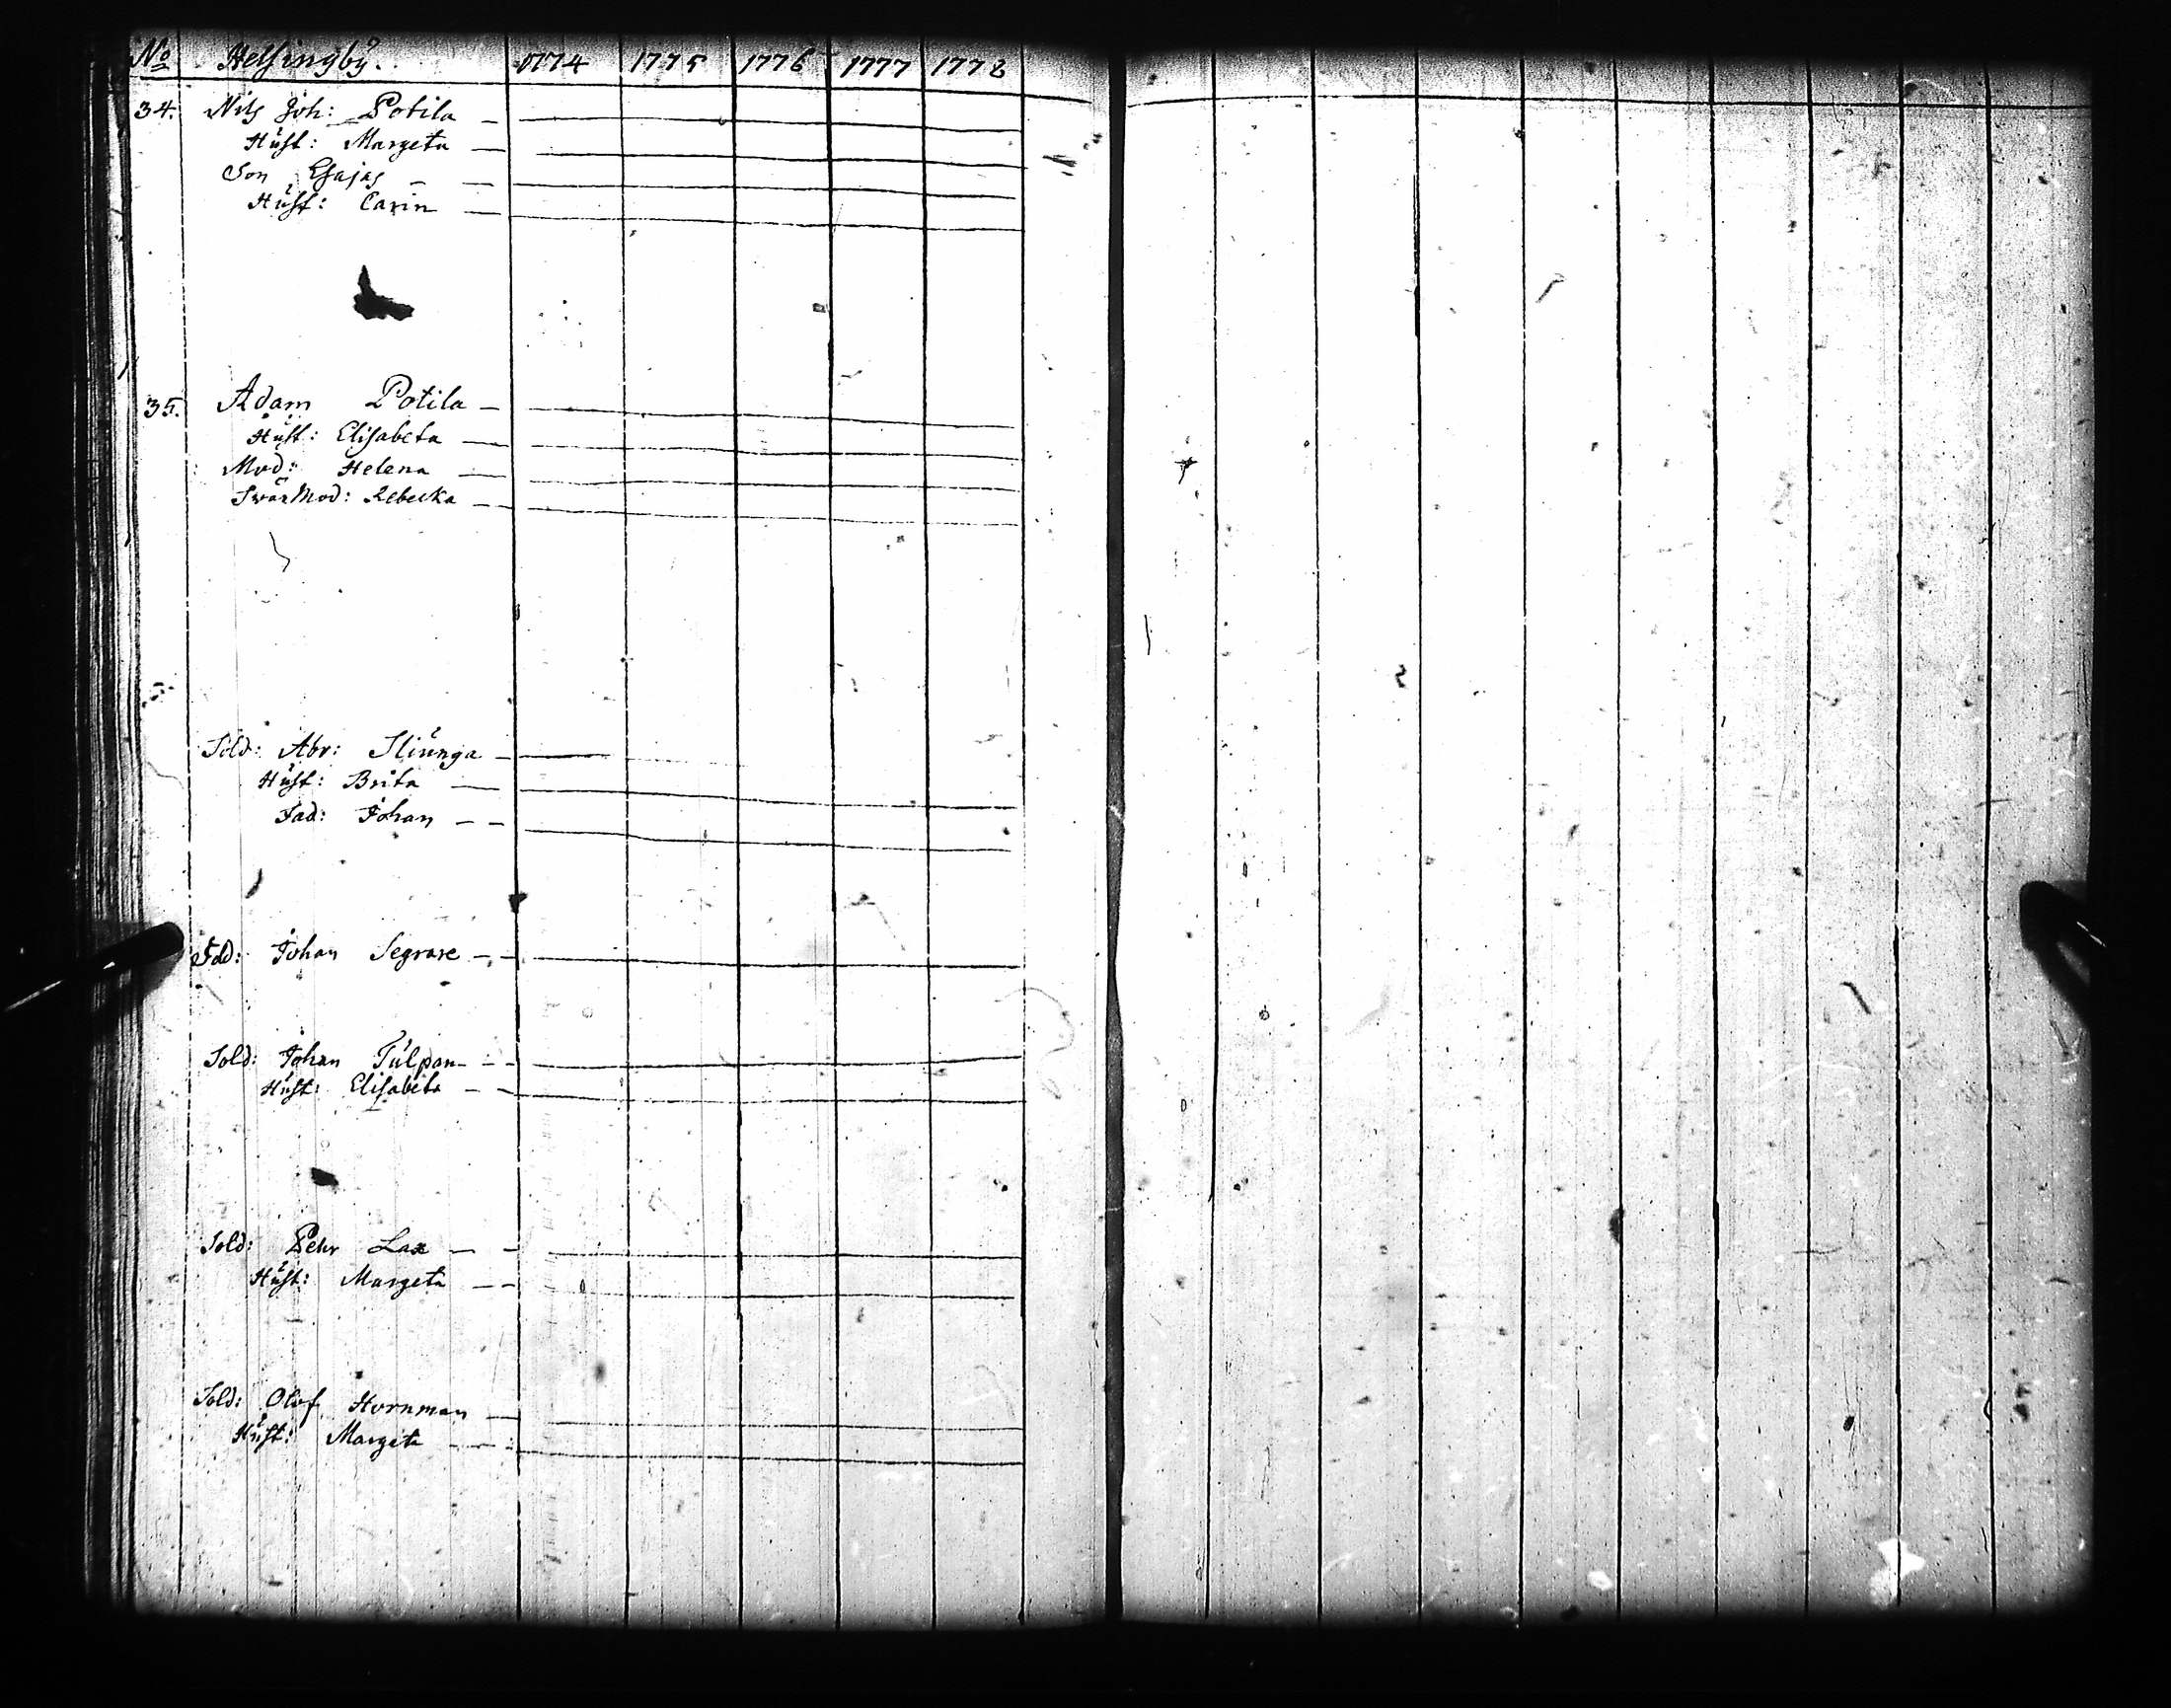 No Helsingby. 1774 1775 1776 1777 1778
34. Nils Joh: Potila
Hust: Margeta
Son Esajas
Hust: Carin
35. Adam Potila
Hust: Elisabeta
Mod: Helena
SwärMod: Rebecka
Sold: Abr: Sliunga
Hust: Brita
Fad: Johan
Sold: Johan Segrare
Sold: Johan Tulpan
Hust: Elisabeta
Sold: Pehr Lax
Hust: Margeta
Sold: Olof Hornman
Hust: Margeta